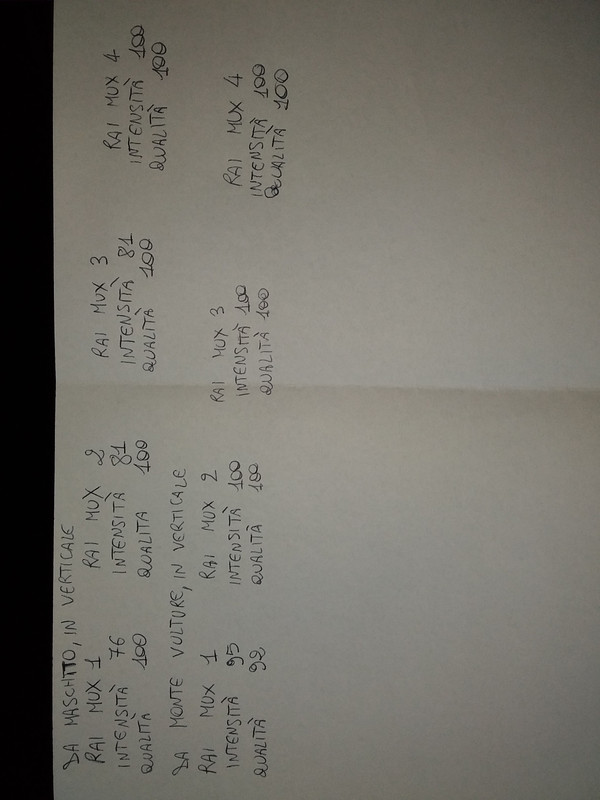 DA MASCHITO, IN VERTICALE
RAI MUX 1 RAI MUX 2 RAI MUX 3 RAI MUX 4
INTENSITÀ 76 INTENSITÀ 81 INTENSITÀ 81 INTENSITÀ 100
QUALITÀ 100 QUALITÀ 100 QUALITÀ 100 QUALITÀ 100
DA MONTE VULTURE, IN VERTICALE
RAI MUX 1 RAI MUX 2 RAI MUX 3 RAI MUX 4
INTENSITÀ 95 INTENSITÀ 100 INTENSITÀ 100 INTENSITÀ 100
QUALITÀ 92 QUALITÀ 100 QUALITÀ 100 QUALITÀ 100